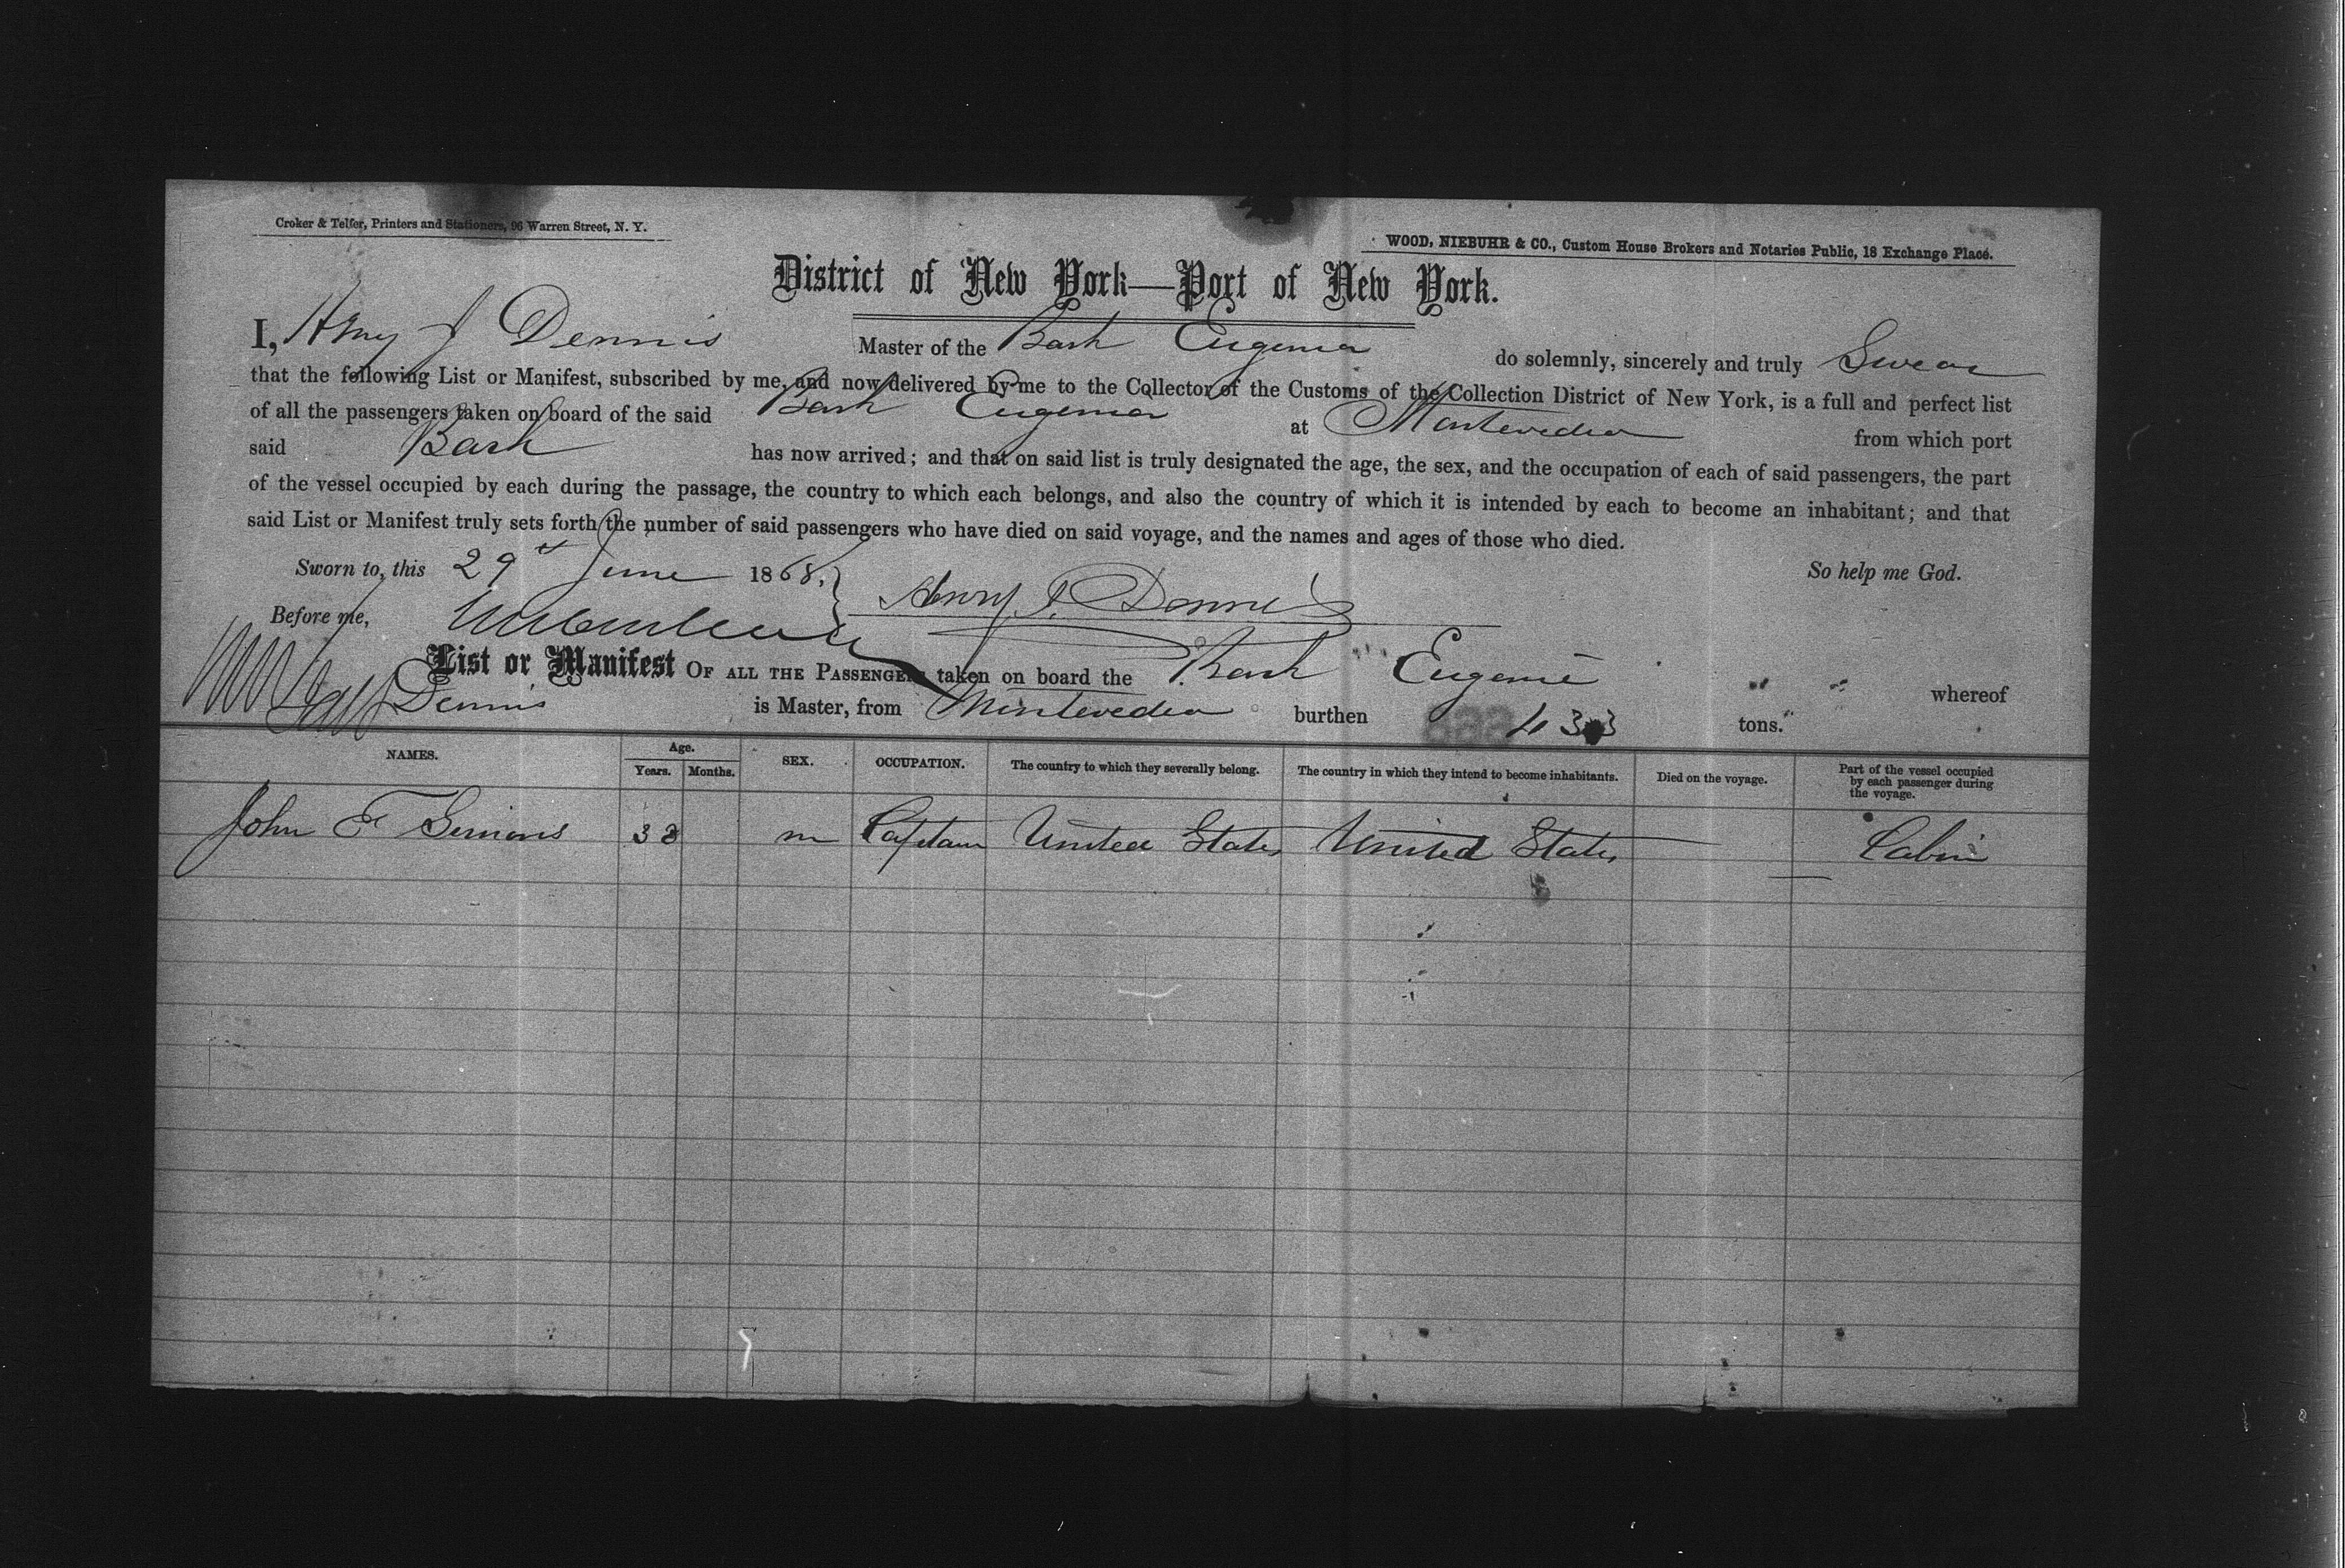 Croker & Telfer, Printers and Stationers, 96 Warren Street, N. Y.
WOOD, NIEBUHR & CO., Custom House Brokers and Notaries Public, 18 Exchange Place.
District of New York—Port of New York.
I, Henry J Dennis Master of the Bark Eugenia do solemnly, sincerely and truly Swear
that the following List or Manifest, subscribed by me, and now delivered by me to the Collector of the Customs of the Collection District of New York, is a full and perfect list
of all the passengers taken on board of the said Bark Eugenia at Montevedeo from which port
said Bark has now arrived; and that on said list is truly designated the age, the sex, and the occupation of each of said passengers, the part
of the vessel occupied by each during the passage, the country to which each belongs, and also the country of which it is intended by each to become an inhabitant; and that
said List or Manifest truly sets forth the number of said passengers who have died on said voyage, and the names and ages of those who died.
Sworn to, this 29th June 1868. So help me God.
Before me, Henry J. Dennis
List or Manifest OF ALL THE PASSENGERS taken on board the Bark Eugenie whereof
Dennis is Master, from Montevedeo burthen 433 tons.
NAMES. Age. Years. Months. SEX. OCCUPATION. The country to which they severally belong. The country in which they intend to become inhabitants. Died on the voyage. Part of the vessel occupied by each passenger during the voyage.
John F Simons 38 m Captain United States United States — Cabin